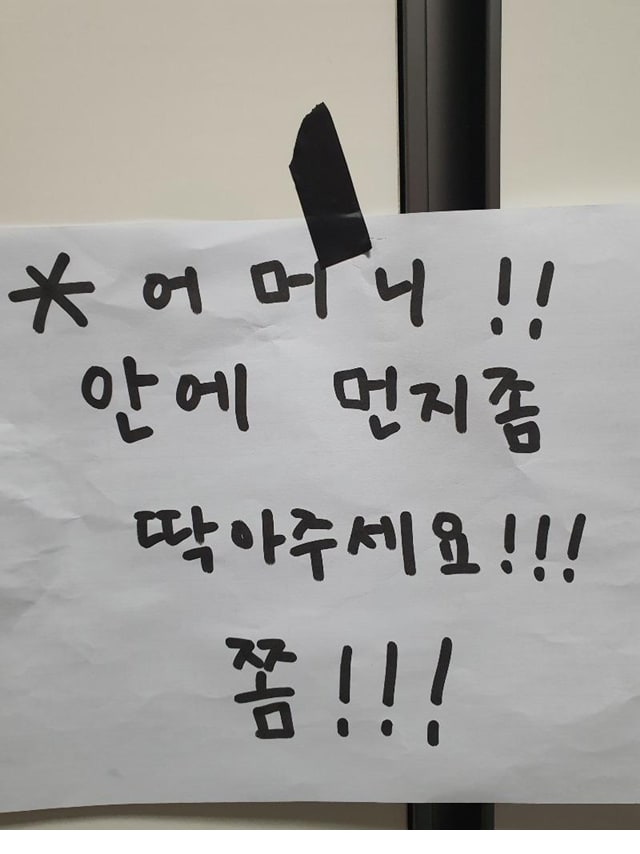 * 어머니!!
안에 먼지좀
딱아주세요!!!
쫌!!!